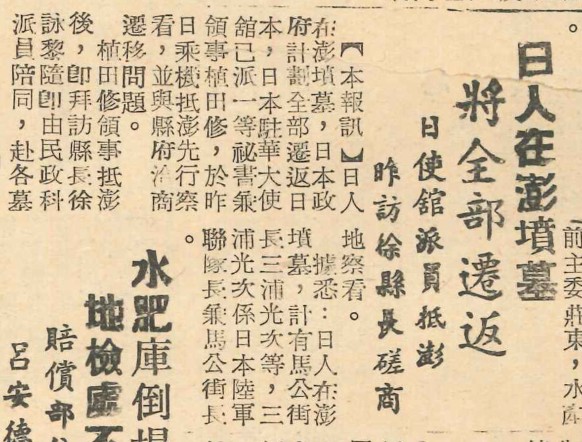 日人在澎墳墓
將全部遷返
日使館派員抵澎
昨訪徐縣長磋商
【本報訊】日人
在澎墳墓，日本政
府計劃全部遷返日
本，日本駐華大使
舘已派一等祕書兼
領事植田修，於昨
日乘機抵澎先行察
看，並與縣府洽商
遷移問題。
植田修領事抵澎
後，卽拜訪縣長徐
詠黎隨卽由民政科
派員陪同，赴各墓
地察看。
據悉：日人在澎
墳墓，計有馬公街
長三浦光次等，三
浦光次係日本陸軍
聯隊長兼馬公街長
。
前主委莊東，水產
水肥庫倒塌
地檢處不
賠償部
呂安德